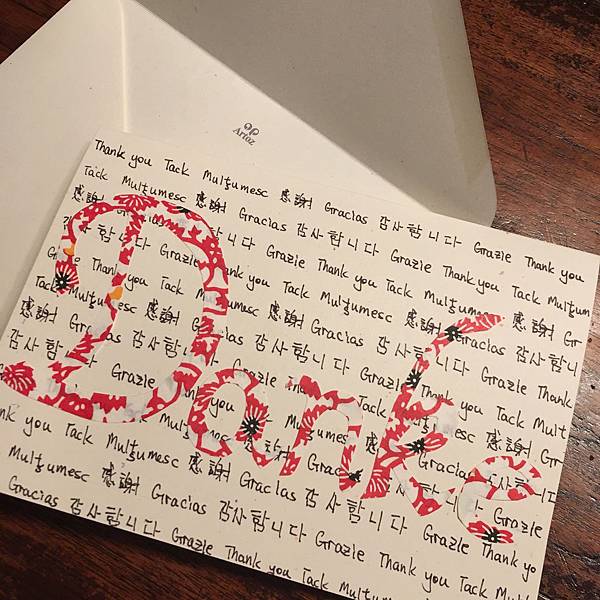 Artoz
Thank you Tack Mulțumesc 感謝 Gracias 감사합니다 Grazie Thank you
Tack Mulțumesc 感謝 Gracias 감사합니다 Grazie Thank you Tack Mulțum
감사합니다 Grazie Thank you Tack Mulțumesc 感謝 Gr
Grazie Thank you Tack Mulțumesc 感謝 Gracias 감사합니
Tack Mulțumesc 感謝 Gracias 감사합니다 Grazie Thank
Gracias 감사합니다 Grazie Thank
감사합니다 Grazie you Tack Mulțumesc 感謝 Gr
Danke
ank you Tack Mulțumesc 感謝 감사합니다
Mulțumesc 感謝 Gracias 감사합니다 Grazie
Gracias 감사합니다 Grazie Thank you Tack Mulțum